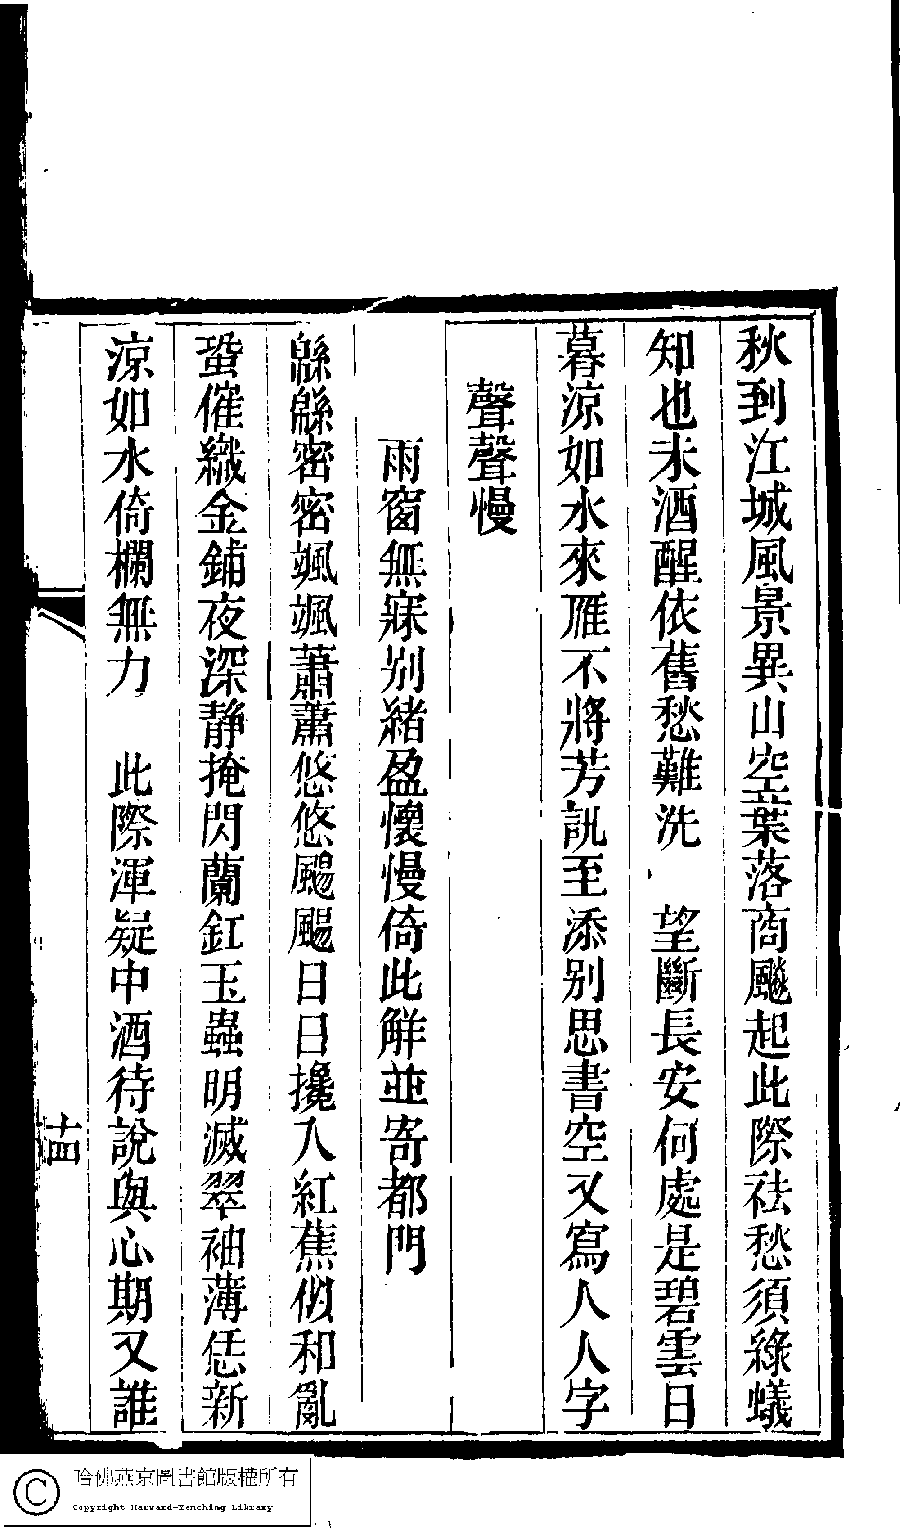 秋到江城風景異山空葉落商飈起此際祛愁須綠蟻
知也未酒醒依舊愁難洗　望斷長安何處是碧雲日
暮涼如水來雁不將芳訊至添别思書空又寫人人字
聲聲慢
雨窗無寐别緒盈懷慢倚此解並寄都門
緜緜密密颯颯蕭蕭悠悠颺颺日日攙入紅蕉似和亂
蛩催織金鋪夜深静掩閃蘭釭玉蟲明滅翠袖薄恁新
涼如水倚欄無力　此際渾疑中酒待說與心期又誰
十四
哈佛燕京圖書館版權所有
Copyright Harvard-Yenching Library